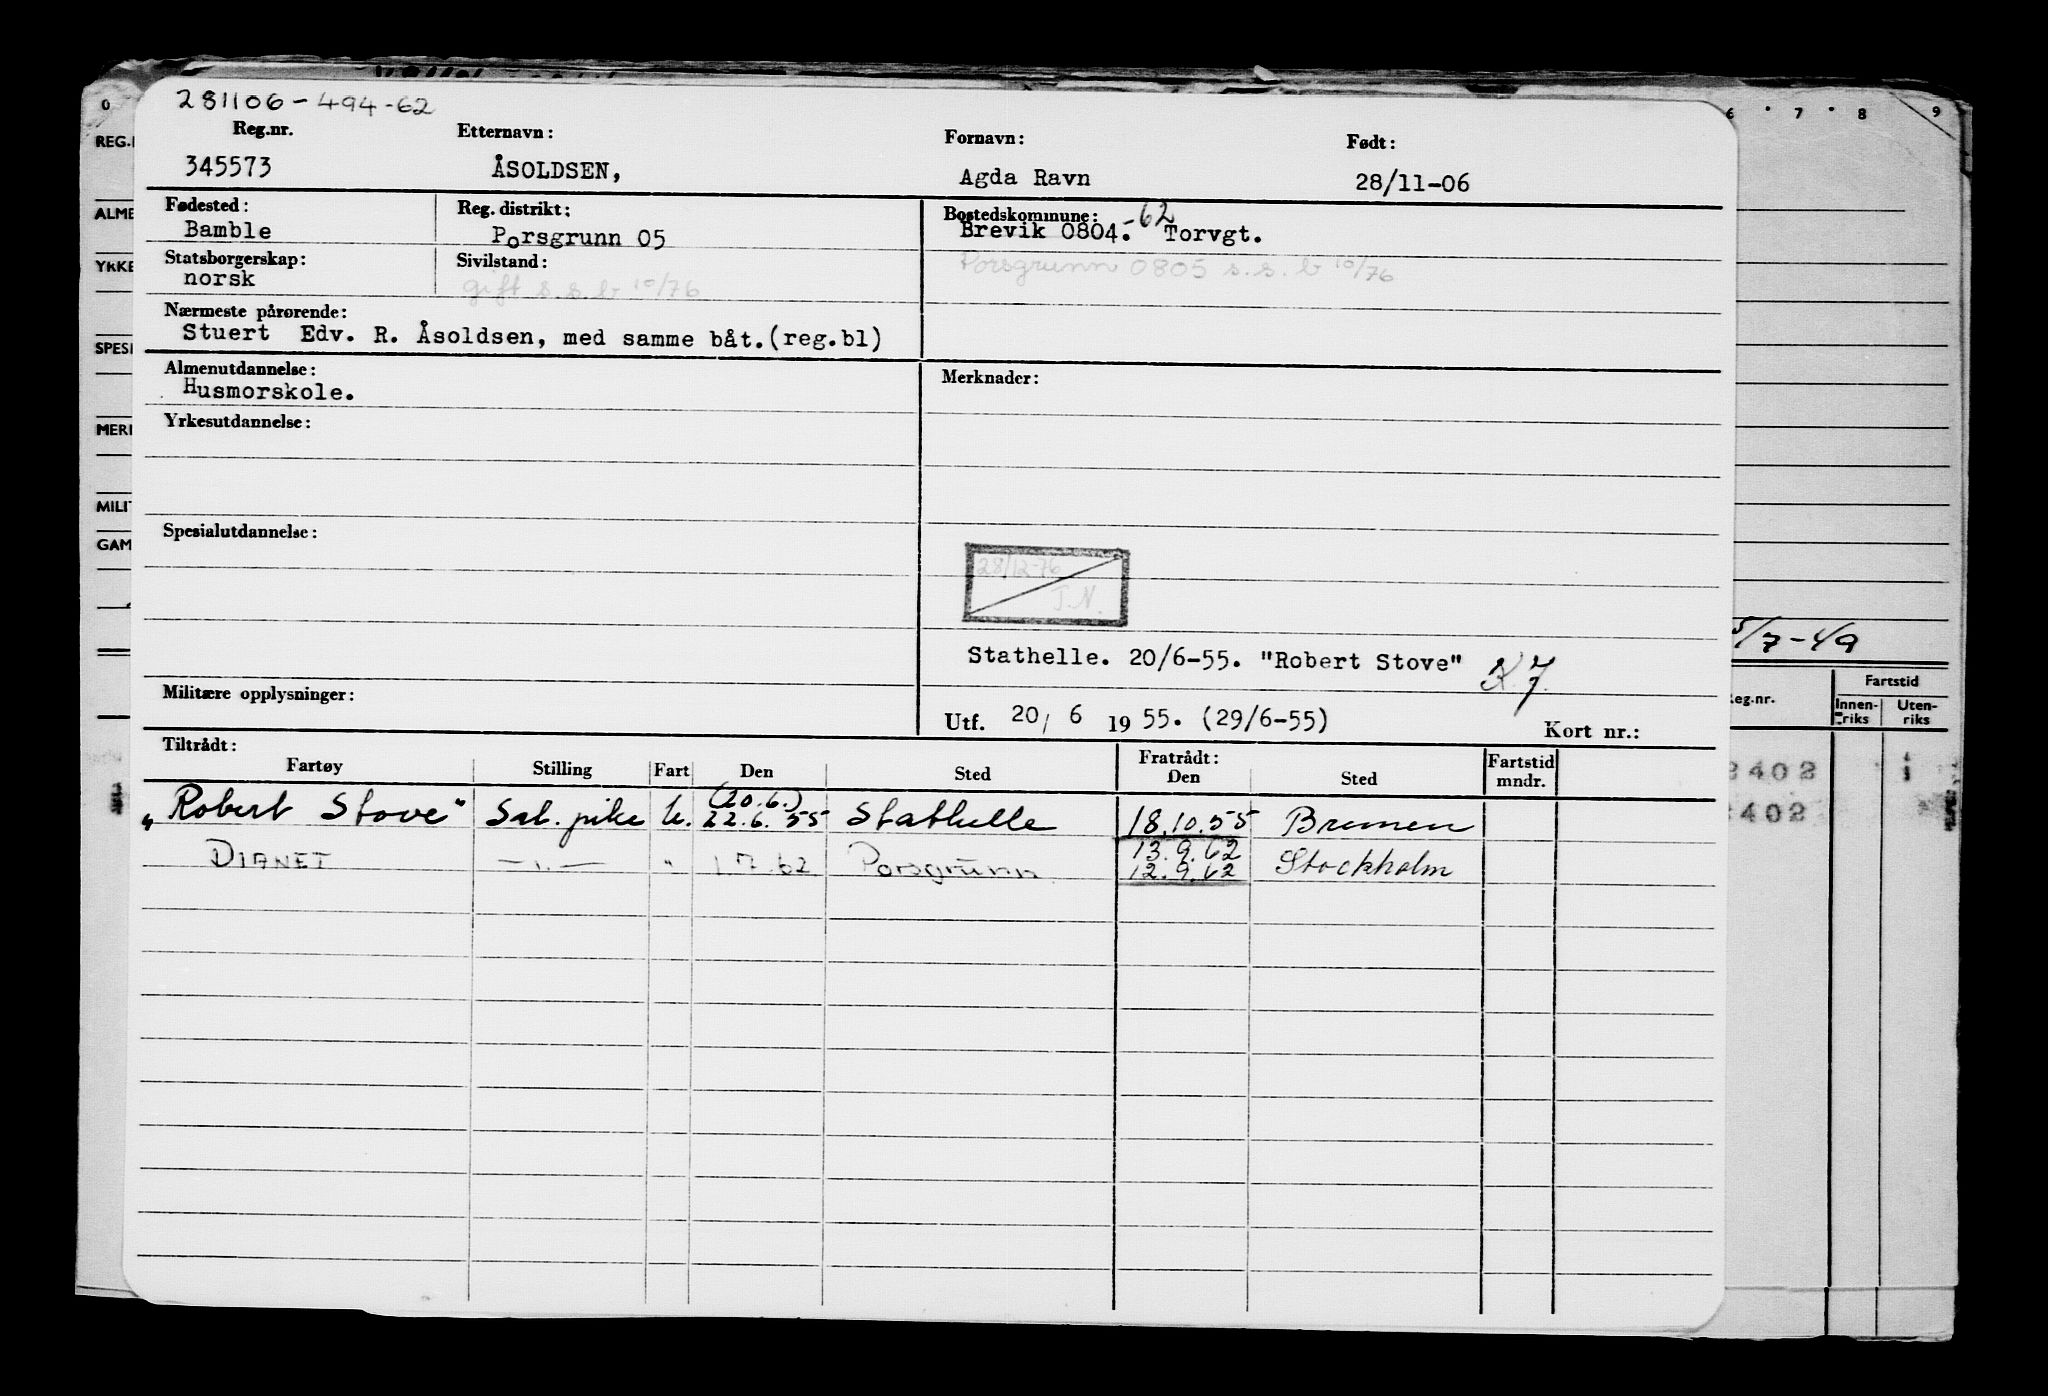 281106-494-62
Reg.nr. Etternavn: Fornavn: Født:
345573 ÅSOLDSEN, Agda Ravn 28/11-06
Fødested: Reg. distrikt: Bostedskommune:
Bamble Porsgrunn 05 Brevik 0804.-62 Torvgt.
Statsborgerskap: Sivilstand: Porsgrunn 0805 s.s.b 10/76
norsk gift s.s.b 10/76
Nærmeste pårørende:
Stuert Edv. R. Åsoldsen, med samme båt.(reg.bl)
Almenutdannelse: Merknader:
Husmorskole.
Yrkesutdannelse:
Spesialutdannelse:
28/12-76
T.N.
Stathelle. 20/6-55. "Robert Stove"
Militære opplysninger:
Utf. 20/ 6 1955. (29/6-55) Kort nr.:
Tiltrådt: Fratrådt:
Fartøy Stilling Fart Den Sted Den Sted Fartstid mndr.
(20.6.)
"Robert Stove" Sal. pike U. 22.6.55 Stathelle 18.10.55 Bremen
13.9.62
DIANET —"— " 1.7.62 Porsgrunn 12.9.62 Stockholm
0 6 7 8 9
REG.
ALME
YRKE
SPESI
MERK
MILIT
GAM
5/7-49
Reg.nr. Fartstid
Innen-riks Uten-riks
2402 1
402